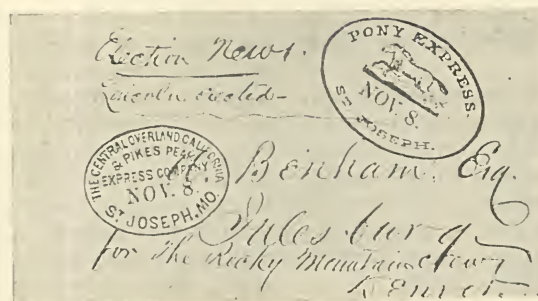 Election News.
Lincoln elected-
PONY EXPRESS.
NOV. 8.
ST JOSEPH.
THE CENTRAL OVERLAND CALIFORNIA
& PIKES PEAK
EXPRESS COMPANY
NOV. 8.
ST JOSEPH, MO.
Benham. Esq.
Julesburg
for The Rocky Mountain News
Denver.